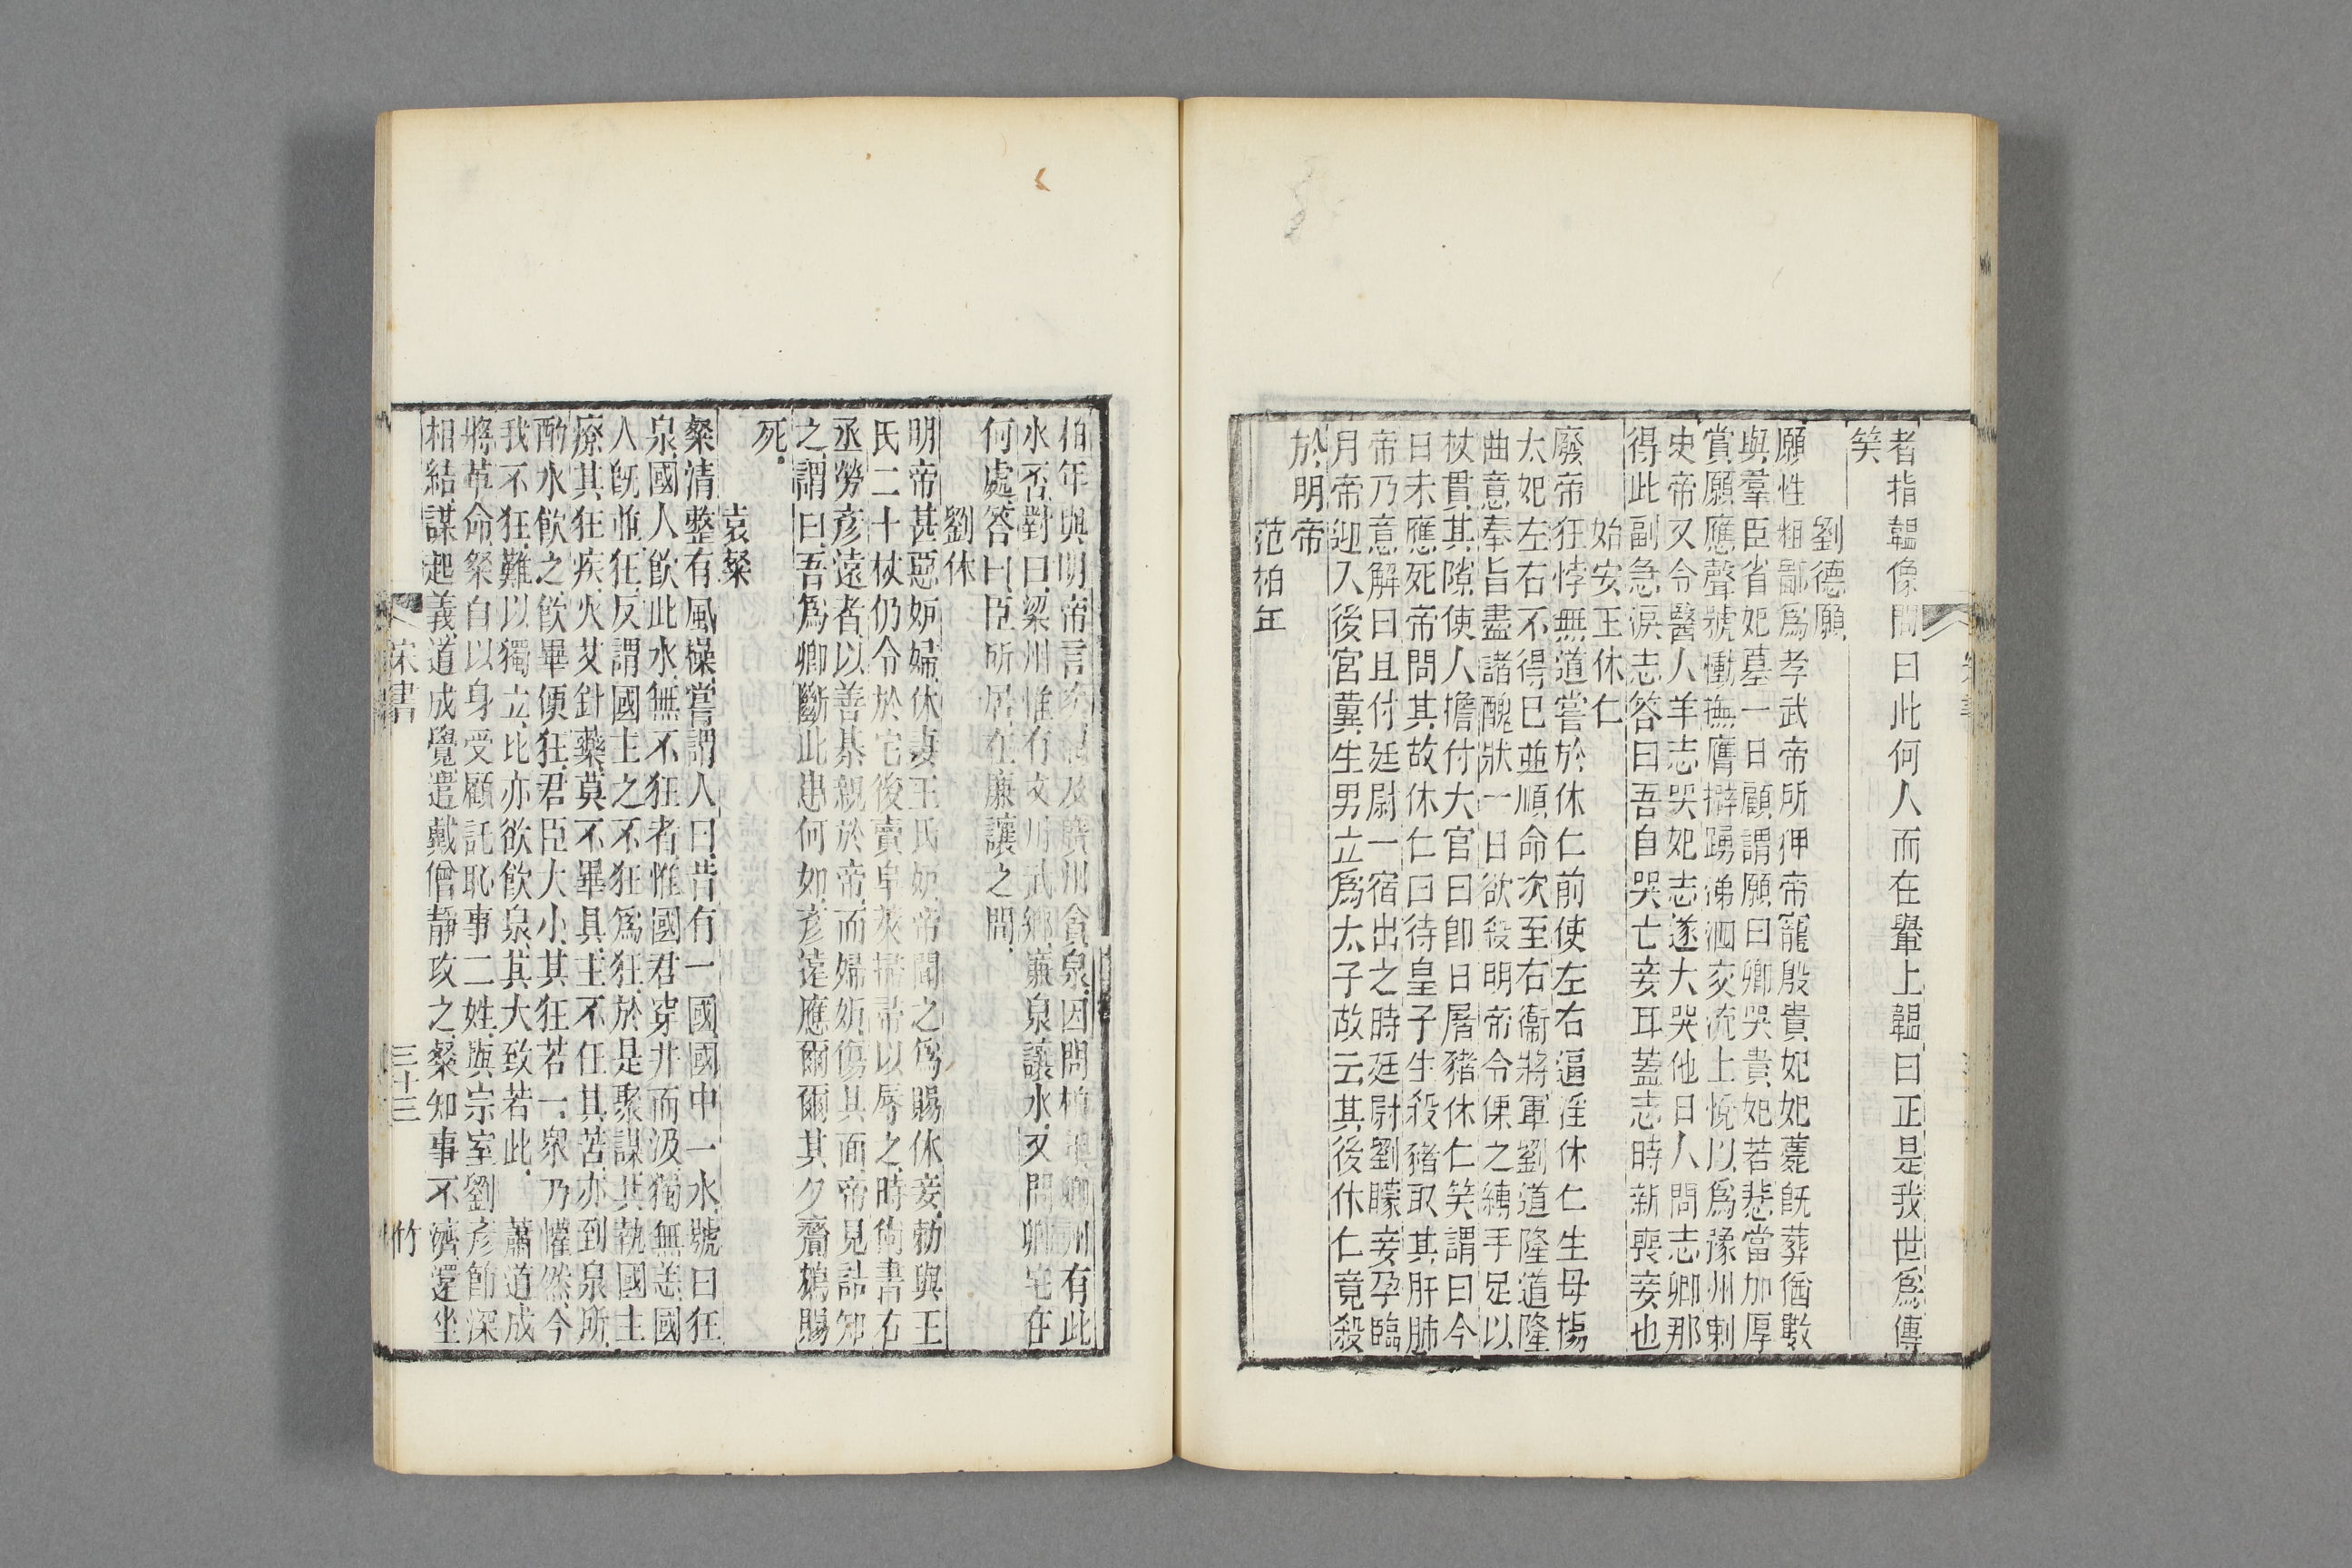 者指韞像問曰此何人而在轝上韞曰正是我世爲傳
矣
劉德願
願性粗鄙爲孝武帝所狎帝寵殷貴妃妃薨既葬僧數
與羣臣省妃墓一日顧謂願曰卿哭貴妃若悲當加厚
賞願應聲號慟撫膺擗踴涕泗交流上悅以爲豫州刺
史帝又令醫人羊志哭妃志遂大哭他日人問志卿那
得此副急淚志答曰吾自哭亡妾耳蓋志時新喪妾也
始安王休仁
廢帝狂悖無道嘗於休仁前使左右逼淫休仁生母楊
太妃左右不得已並順命次至右衞將軍劉道隆道隆
曲意奉旨盡諸醜狀一日欲殺明帝令倮之縛手足以
杖貫其隙使人擔付大官曰即日屠豬休仁笑謂曰今
日未應死帝問其故休仁曰待皇子生殺豬取其肝肺
帝乃意解曰且付廷尉一宿出之時廷尉劉矇妾孕臨
月帝迎入後宮冀生男立爲太子故云其後休仁竟殺
於明帝
范柏年
柏年與明帝言次及廣州貪泉因問柏年卿州有此
水否對曰梁州惟有文川武鄉亷泉讓水又問卿宅在
何處答曰臣所居在廉讓之間
劉休
明帝甚惡妬婦休妻王氏妬帝聞之爲賜休妾勅與王
氏二十杖仍令於宅後賣皁莢掃帚以辱之時尙書右
丞勞彥遠者以善棊親於帝而婦妬傷其面帝見詰知
之謂曰吾爲卿斷此患何如彥遠應爾爾其夕齎鴆賜
死
袁粲
粲清整有風操嘗謂人曰昔有一國國中一水號曰狂
泉國人飲此水無不狂者惟國君穿井而汲獨無恙國
人既並狂反謂國主之不狂爲狂於是聚謀共執國主
療其狂疾火艾針藥莫不畢具主不任其苦亦到泉所
酌水飲之飲畢便狂君臣大小其狂若一衆乃懽然今
我不狂難以獨立比亦欲飲泉其大致若此　蕭道成
將革命粲自以身受顧託恥事二姓與宗室劉彥節深
相結謀起義道成覺遣戴僧靜攻之粲知事不濟還坐
宋書
三十三
竹